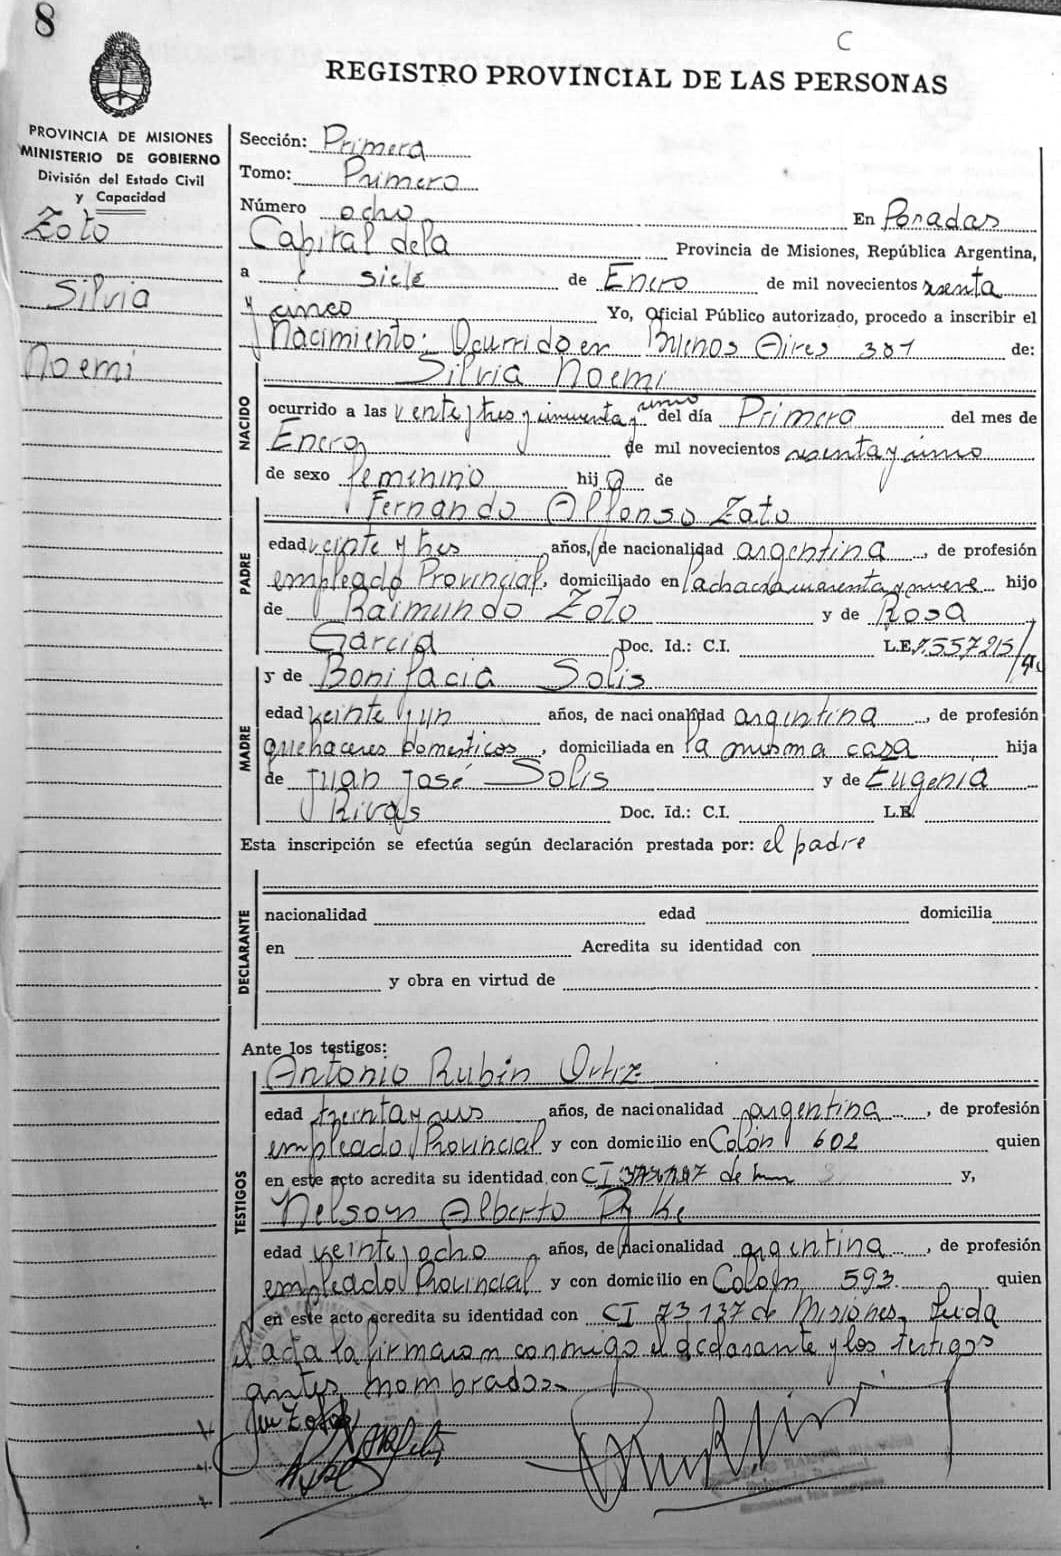 8
C
REGISTRO PROVINCIAL DE LAS PERSONAS
PROVINCIA DE MISIONES
MINISTERIO DE GOBIERNO
División del Estado Civil
y Capacidad
Zoto
Silvia
Noemi
Sección: Primera
Tomo: Primero
Número ocho En Posadas
Capital dela Provincia de Misiones, República Argentina,
a siete de Enero de mil novecientos sesenta
y cinco Yo, Oficial Público autorizado, procedo a inscribir el
Nacimiento: Ocurrido en Buenos Aires 381 de:
Silvia Noemi
NACIDO
ocurrido a las veinte y tres y cincuenta y uno del día Primero del mes de
Enero de mil novecientos sesenta y cinco
de sexo femenino hija de
PADRE
Fernando Alfonso Zoto
edad veinte y tres años, de nacionalidad argentina, de profesión
empleado Provincial, domiciliado en la chacra cuarenta y nueve hijo
de Raimundo Zoto y de Rosa
Garcia Doc. Id.: C.I. L.E. 7.557.215/
y de Bonifacia Solis
MADRE
edad veinte y un años, de nacionalidad argentina, de profesión
quehaceres domesticos, domiciliada en la misma casa hija
de Juan José Solis y de Eugenia
Rivas Doc. Id.: C.I. L.E.
Esta inscripción se efectúa según declaración prestada por: el padre
DECLARANTE
nacionalidad edad domicilia
en Acredita su identidad con
y obra en virtud de
Ante los testigos:
TESTIGOS
Antonio Rubén Ortiz
edad treinta y seis años, de nacionalidad argentina, de profesión
empleado Provincial y con domicilio en Colón 602 quien
en este acto acredita su identidad con CI de y,
Nelson Alberto
edad veinte y ocho años, de nacionalidad argentina, de profesión
empleado Provincial y con domicilio en Colon 593 quien
en este acto acredita su identidad con CI 73.137 de Misiones, Leida
el acta la firmaron conmigo el declarante y los testigos
antes nombrados